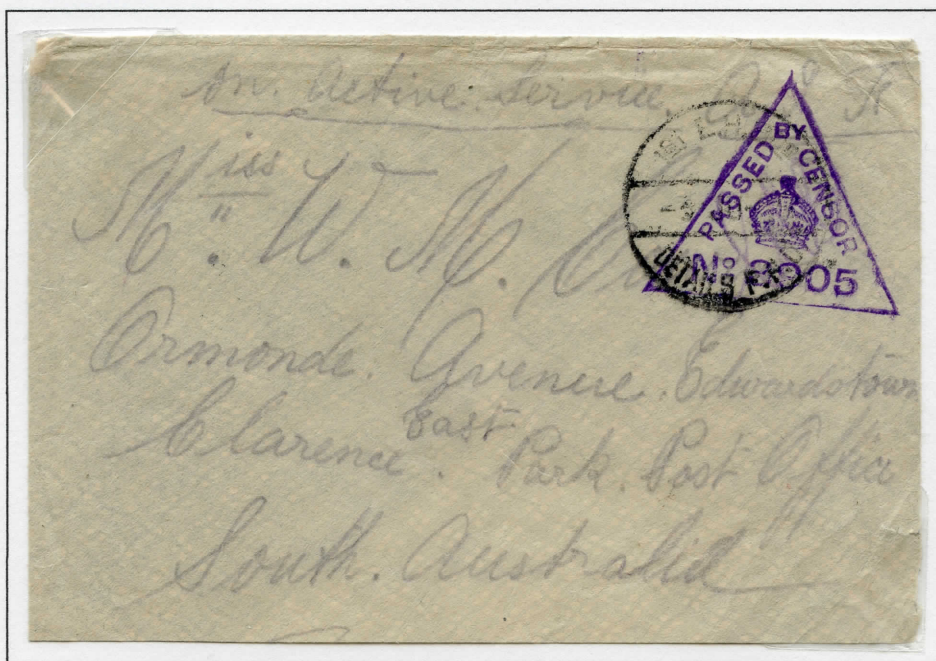 On. Active. Service. A I F
PASSED BY CENSOR
No 3905
Miss W. M.
Ormonde. Avenue. Edwardstown
East
Clarence. Park. Post Office
South. Australia